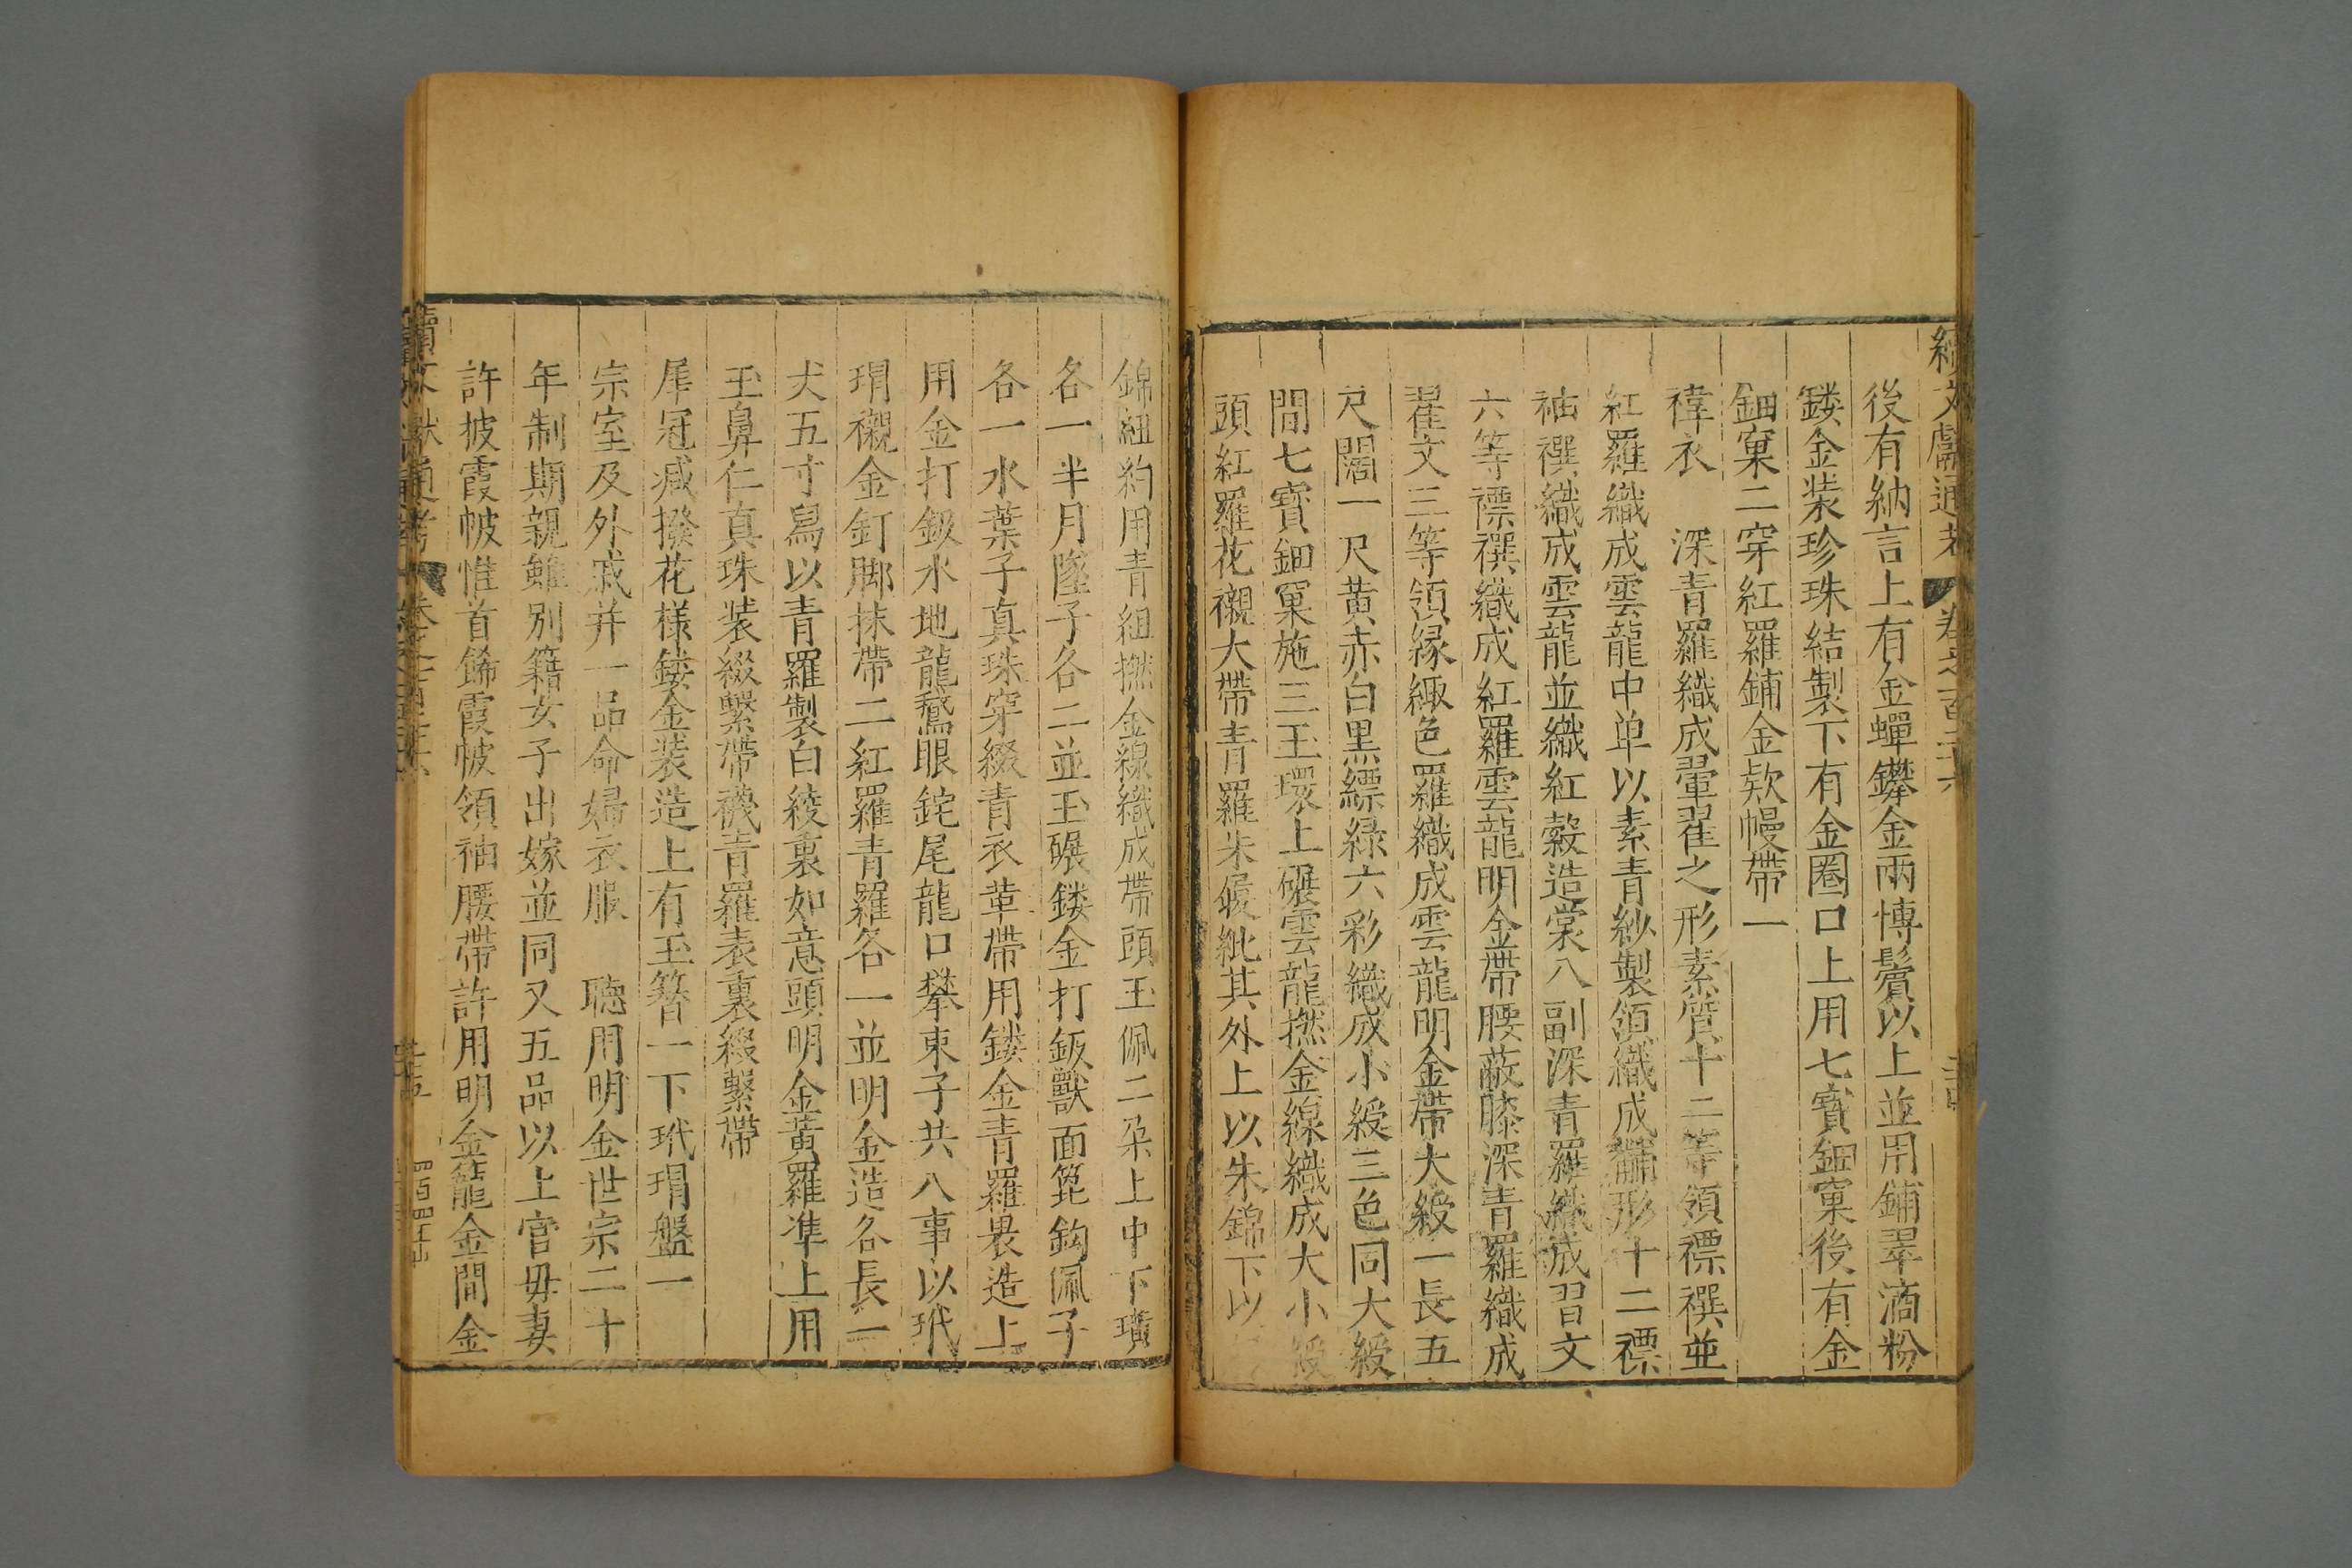 續文獻通考 卷之一百二十六
後有納言上有金蟬鑻金兩博鬢以上並用鋪翠滴粉
鏤金装珍珠結製下有金圈口上用七寳鈿窠後有金
鈿窠二穿紅羅鋪金欵幔帶一
禕衣 深青羅織成翬翟之形素質十二等領褾襈並
紅羅織成雲龍中单以素青紗製領織成黼形十二褾
袖襈織成雲龍並織紅縠造裳八副深青羅織成翟文
六等褾襈織成紅羅雲龍明金帶腰蔽膝深青羅織成
翟文三等領縁緅色羅織成雲龍明金帶大綬一長五
尺闊一尺黃赤白黒縹緑六彩織成小綬三色同大綬
間七寳鈿窠施三玉環上碾雲龍撚金線織成大小綬
頭紅羅花襯大帶青羅朱裏紕其外上以朱錦下以
錦紐約用青組撚金線織成帶頭玉佩二朶上中下璜
各一半月墜子各二並玉碾鏤金打鈑獸面箆鈎佩子
各一水葉子真珠穿綴青衣革帶用鏤金青羅裹造上
用金打鈑水地龍鵞眼鉈尾龍口攀束子共八事以玳
瑁襯金釘脚抹帶二紅羅青羅各一並明金造各長一
丈五寸舄以青羅製白綾裏如意頭明金黃羅準上用
玉鼻仁真珠装綴繫帶襪青羅表裏綴繫帶
犀冠减撥花様鏤金装造上有玉簪一下玳瑁盤一
宗室及外戚并一品命婦衣服 聴用明金世宗二十
年制期親雖别籍女子出嫁並同又五品以上官毋妻
許披霞帔惟首飾霞帔領袖腰帶許用明金籠金間金